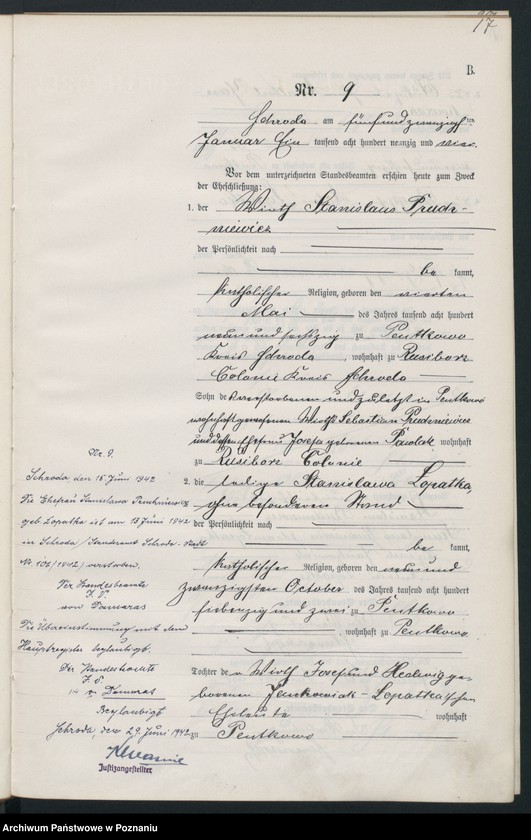 17
B.
Nr. 9
Schroda am fünfundzwanzigsten
Januar Ein tausend acht hundert neunzig und vier.
Vor dem unterzeichneten Standesbeamten erschien heute zum Zweck
der Eheschließung:
1. der Wirth Stanislaus Prudz-
niewicz
der Persönlichkeit nach
be kannt,
katholischer Religion, geboren den vierten
Mai des Jahres tausend acht hundert
neun und sechszig zu Pentkowo
Kreis Schroda, wohnhaft zu Rusiborz
Colonie Kreis Schroda
Sohn des verstorbenen und zuletzt in Pentkowo
wohnhaft gewesenen Wirths Sebastian Prudzniewicz
und dessen Ehefrau Josefa geborenen Pawlak wohnhaft
zu Rusiborz Colonie
2. die ledige Stanislawa Lopatka,
ohne besonderen Stand
der Persönlichkeit nach
be kannt,
katholischer Religion, geboren den neun und
zwanzigsten October des Jahres tausend acht hundert
siebenzig und zwei zu Pentkowo
wohnhaft zu Pentkowo
Tochter der Wirth Josef und Hedwig ge-
borenen Lopatka'schen
Eheleute wohnhaft
zu Pentkowo
Nr. 9.
Schroda den 15 Juni 1942
Die Ehefrau Stanislawa Prudzniewicz
geb. Lopatka ist am 13 Juni 1942
in Schroda /Standesamt Schroda-Stadt
Nr. 106/1942/ verstorben.
Der Standesbeamte
J. V.
von Damaras
Die Übereinstimmung mit dem
Hauptregister beglaubigt.
Der Standesbeamte
J. V.
v. Damaras
Beglaubigt
Schroda, den 29. Juni 1942
Justizangestellter
Archiwum Państwowe w Poznaniu